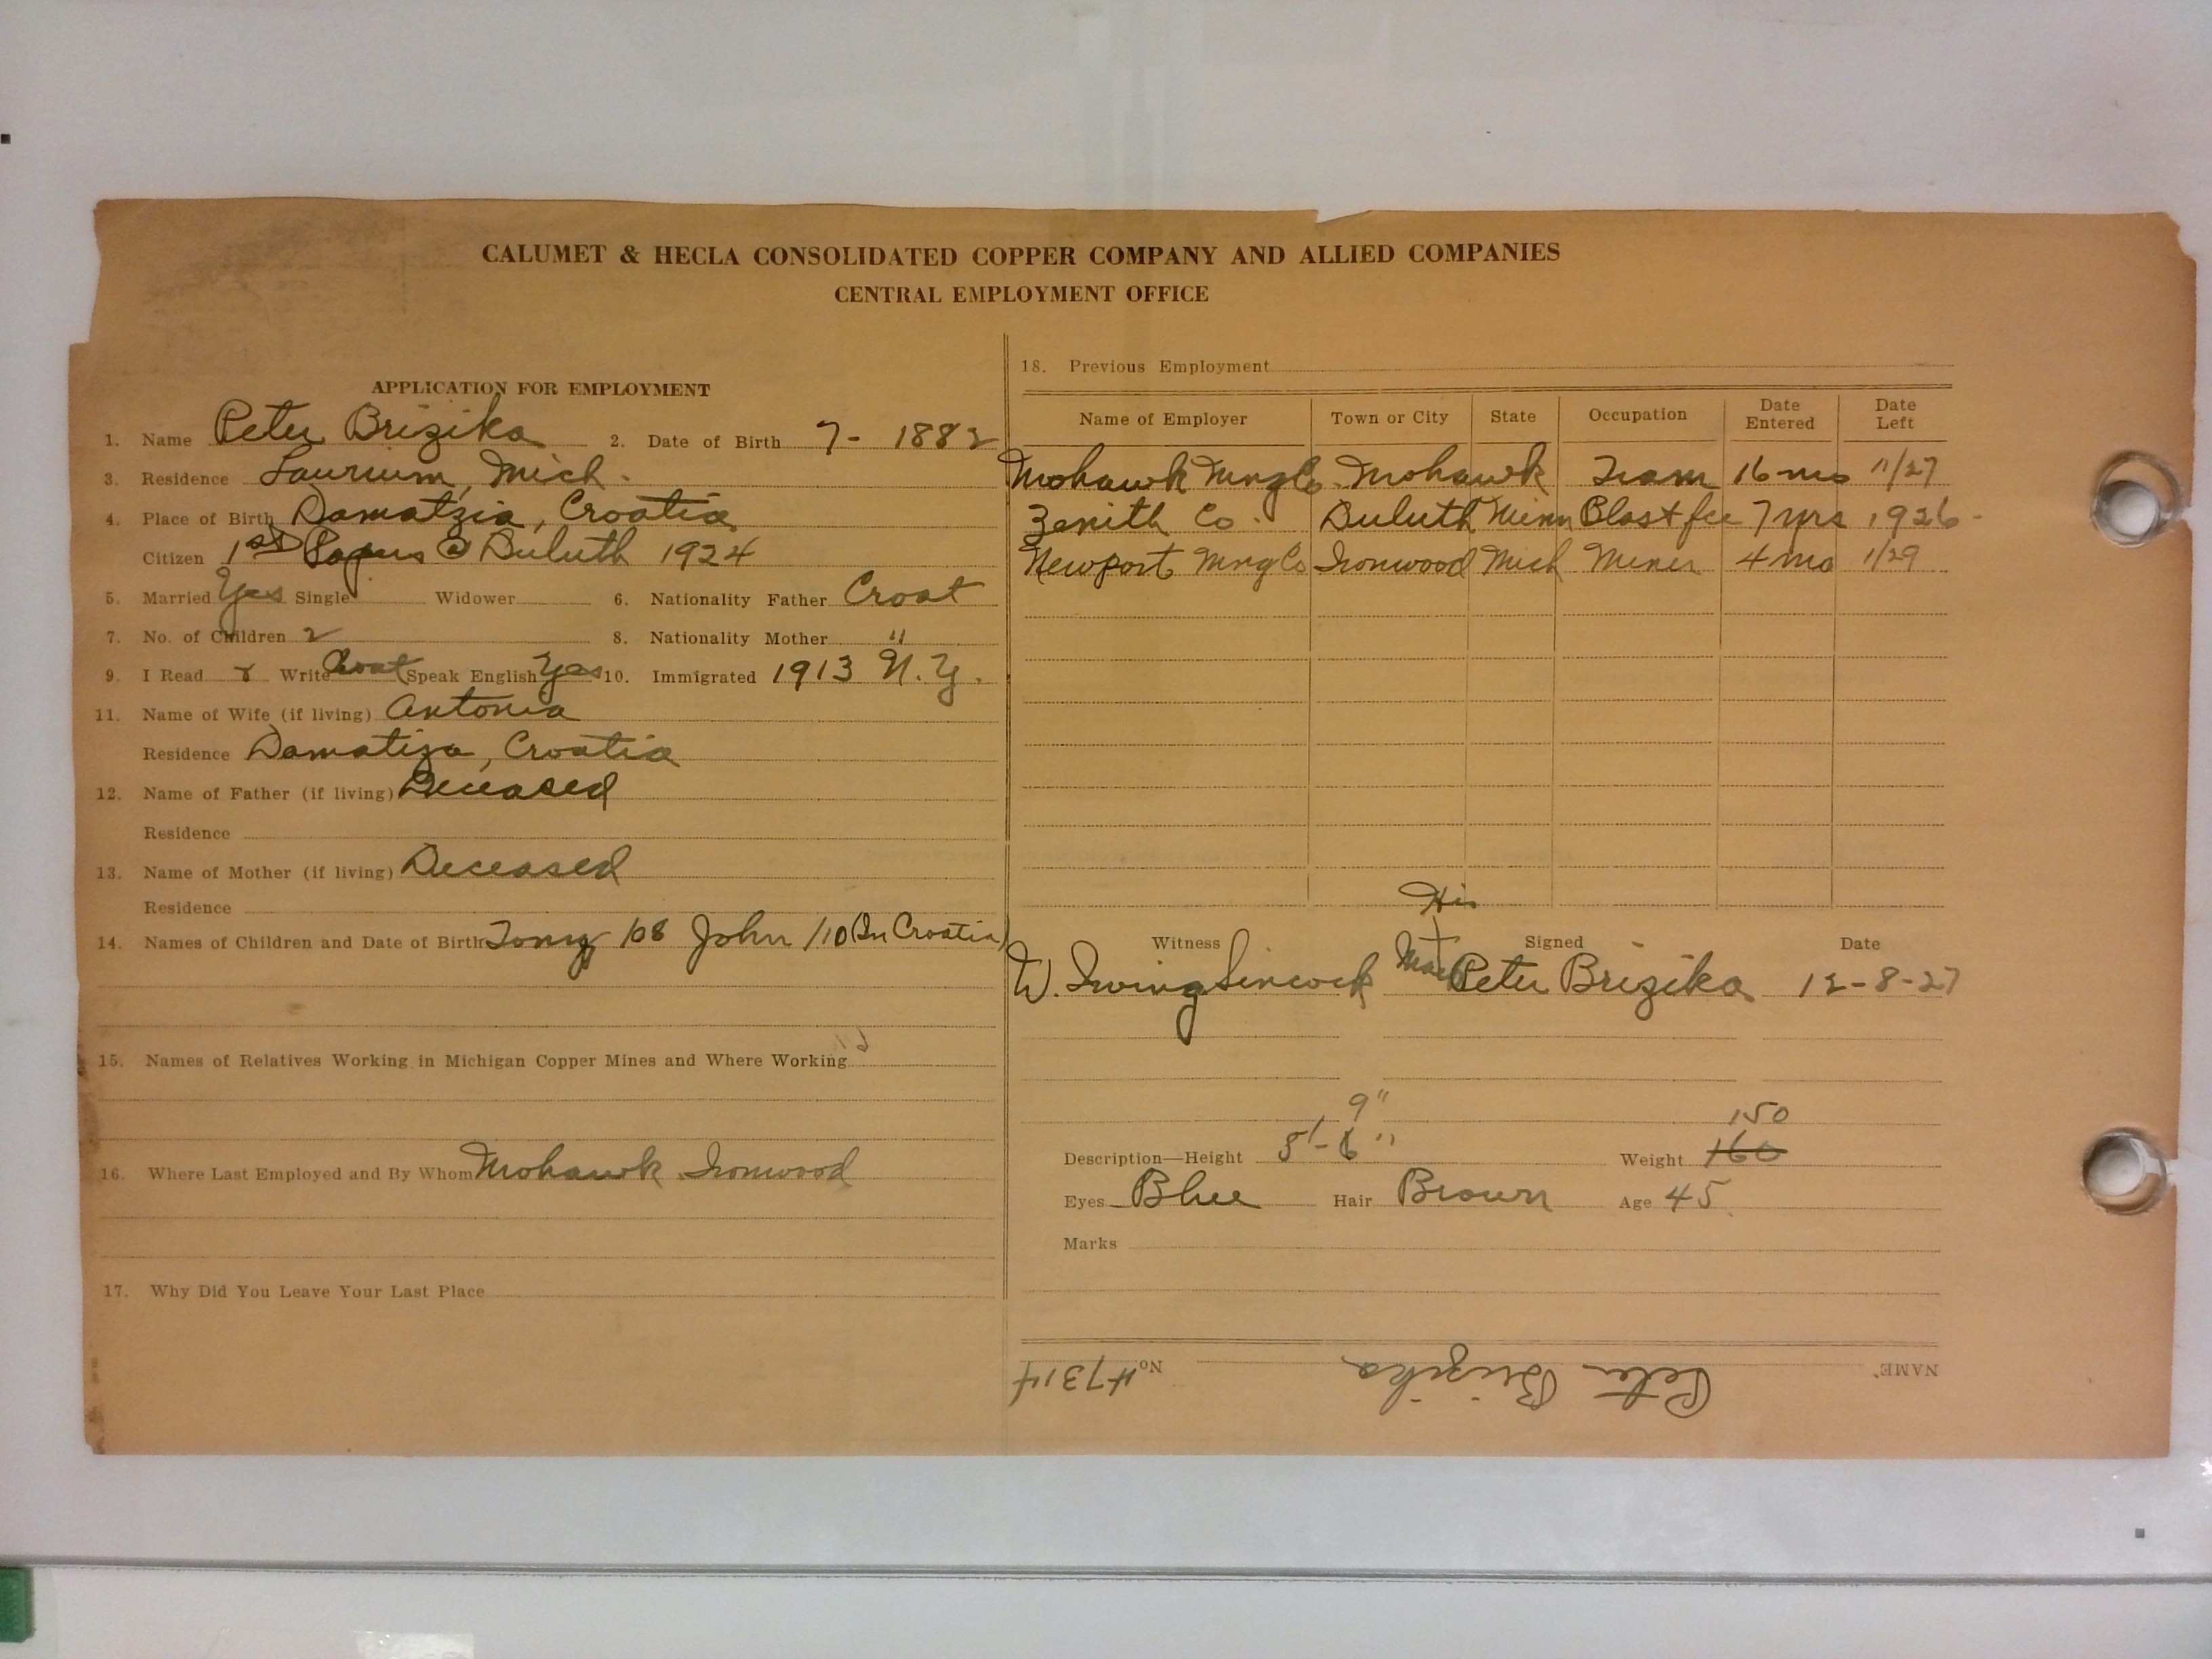 CALUMET & HECLA CONSOLIDATED COPPER COMPANY AND ALLIED COMPANIES
CENTRAL EMPLOYMENT OFFICE
APPLICATION FOR EMPLOYMENT
1. Name Peter Brizika 2. Date of Birth 7- 1882
3. Residence Laurium, Mich.
4. Place of Birth Damatzia, Croatia
Citizen 1st Papers @ Duluth 1924
5. Married Yes Single Widower 6. Nationality Father Croat
7. No. of Children 2 8. Nationality Mother "
9. I Read Write Croat Speak English Yes 10. Immigrated 1913 N.Y.
11. Name of Wife (if living) Antonia
Residence Damatiza, Croatia
12. Name of Father (if living) Deceased
Residence
13. Name of Mother (if living) Deceased
Residence
14. Names of Children and Date of Birth Tony /08 John /10 (In Croatia)
15. Names of Relatives Working in Michigan Copper Mines and Where Working
16. Where Last Employed and By Whom Mohawk Ironwood
17. Why Did You Leave Your Last Place
18. Previous Employment
Name of Employer Town or City State Occupation Date Entered Date Left
Mohawk Mng Co. Mohawk Tram 16 mo 11/27
Zenith Co. Duluth Minn Blast fce 7 yrs 1926
Newport Mng Co Ironwood Mich Miner 4 mo 1/29
His
Witness Signed Date
W. Irving Sincock Mark Peter Brizika 12-8-27
9" 150
Description—Height 5'-6" Weight 160
Eyes Blue Hair Brown Age 45
Marks
NAME Peter Brizika No. #7314